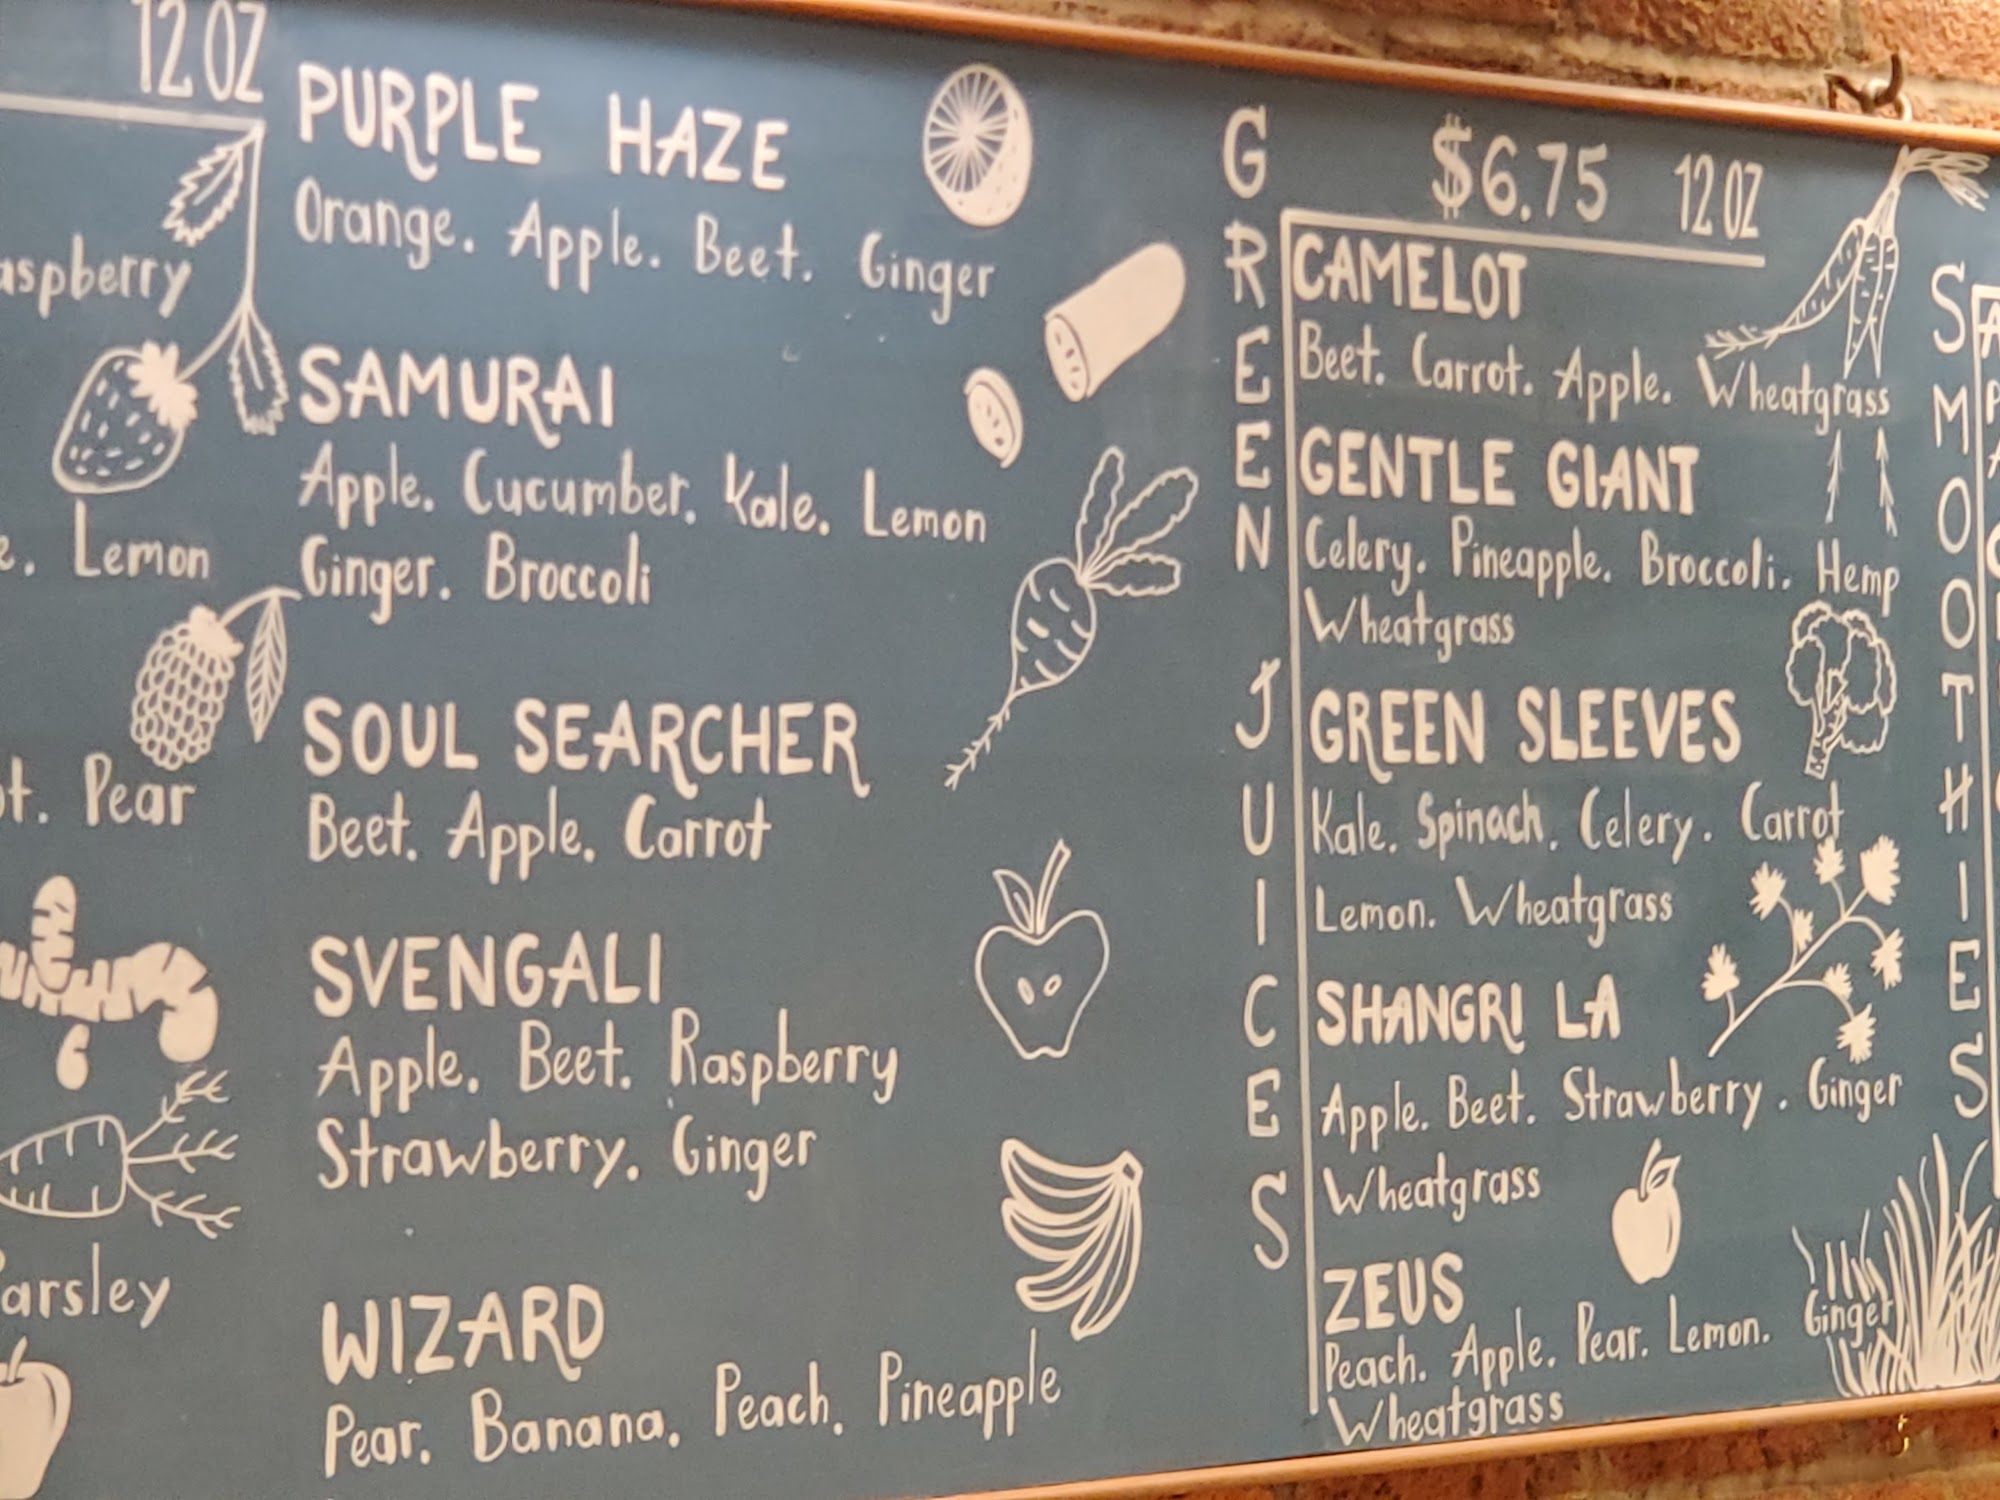 12 OZ
Raspberry
Lemon
Pear
Parsley
PURPLE HAZE
Orange. Apple. Beet. Ginger
SAMURAI
Apple. Cucumber. Kale. Lemon
Ginger. Broccoli
SOUL SEARCHER
Beet. Apple. Carrot
SVENGALI
Apple. Beet. Raspberry
Strawberry. Ginger
WIZARD
Pear. Banana. Peach. Pineapple
GREEN JUICES
$6.75 12 OZ
CAMELOT
Beet. Carrot. Apple. Wheatgrass
GENTLE GIANT
Celery. Pineapple. Broccoli. Hemp
Wheatgrass
GREEN SLEEVES
Kale. Spinach. Celery. Carrot
Lemon. Wheatgrass
SHANGRI LA
Apple. Beet. Strawberry. Ginger
Wheatgrass
ZEUS
Peach. Apple. Pear. Lemon. Ginger
Wheatgrass
SMOOTHIES